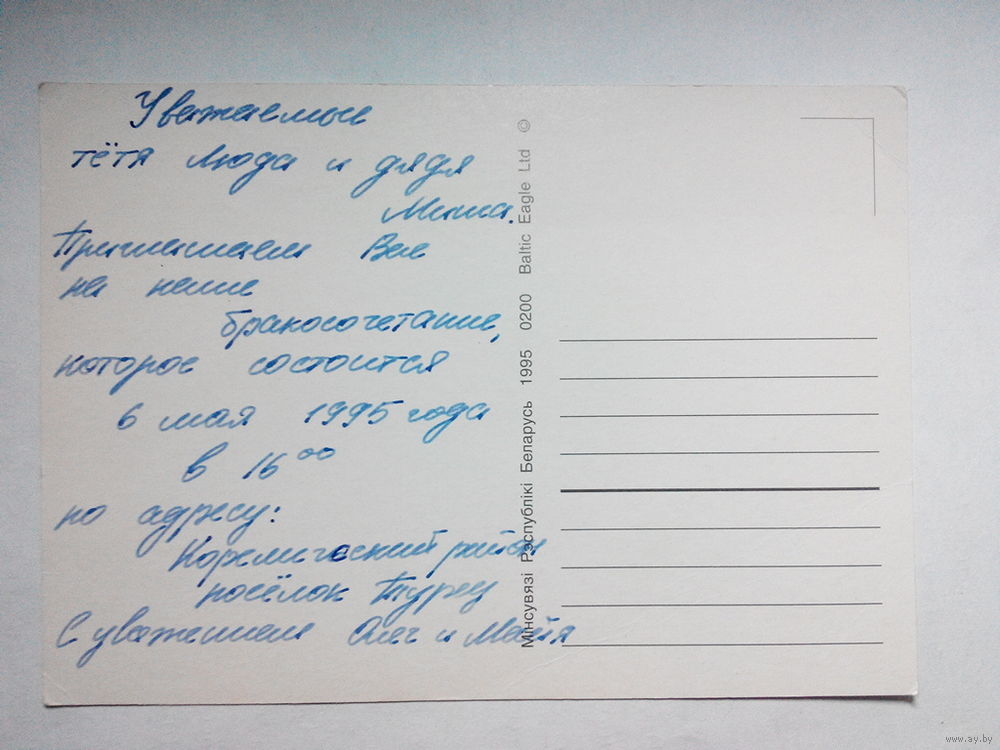 Уважаемые
тётя Люда и дядя
Миша.
Приглашаем Вас
на наше
бракосочетание,
которое состоится
6 мая 1995 года
в 16⁰⁰
по адресу:
Кореличский район
посёлок Турец
С уважением Олег и Майя
Мінсувязі Рэспублікі Беларусь 1995 0200 Baltic Eagle Ltd ©
www.ay.by